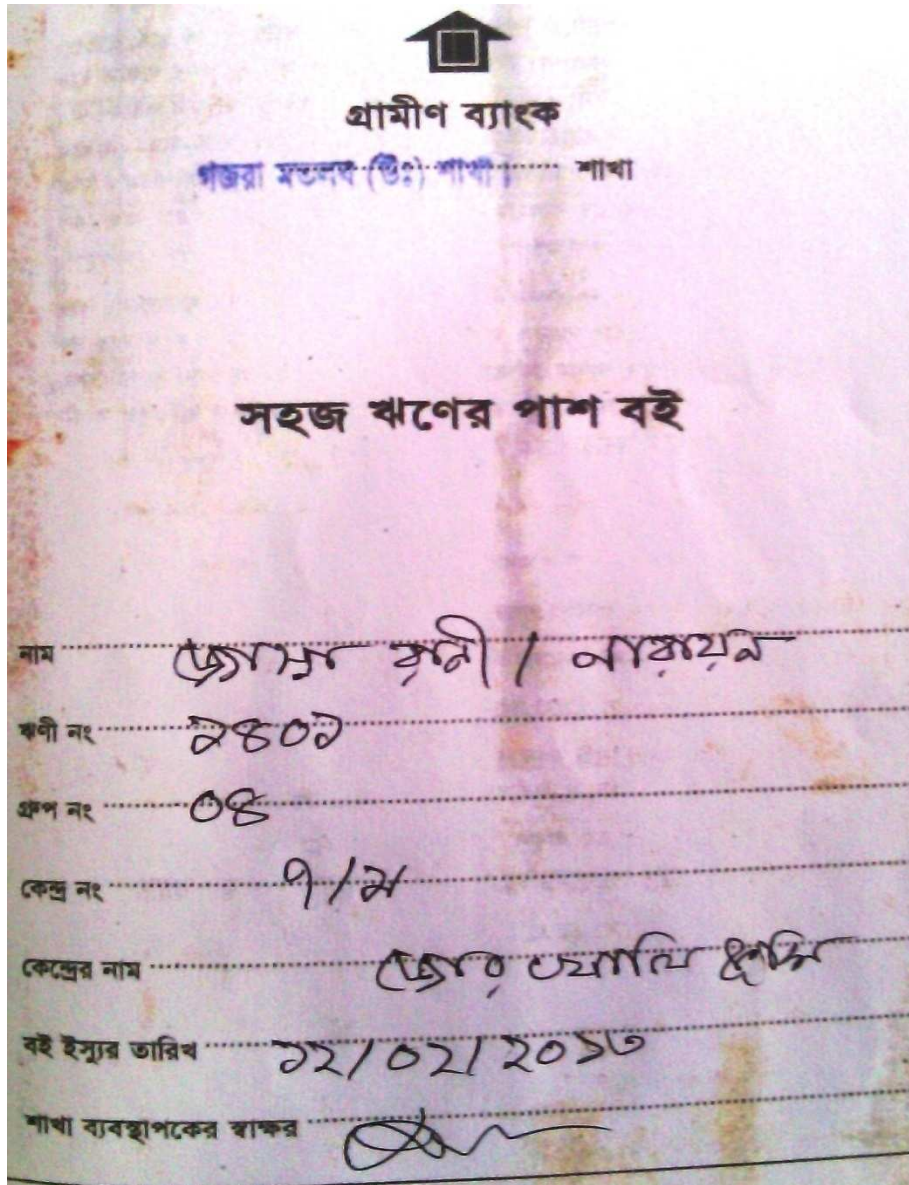 গ্রামীণ ব্যাংক
গজরা মতলব (উঃ) শাখা। শাখা
সহজ ঋণের পাশ বই
নাম রানী / নারায়ন
ঋণী নং ২৪০১
গ্রুপ নং ০৪
কেন্দ্র নং ৭/ম
কেন্দ্রের নাম
বই ইস্যুর তারিখ ১২/০২/২০১৩
শাখা ব্যবস্থাপকের স্বাক্ষর